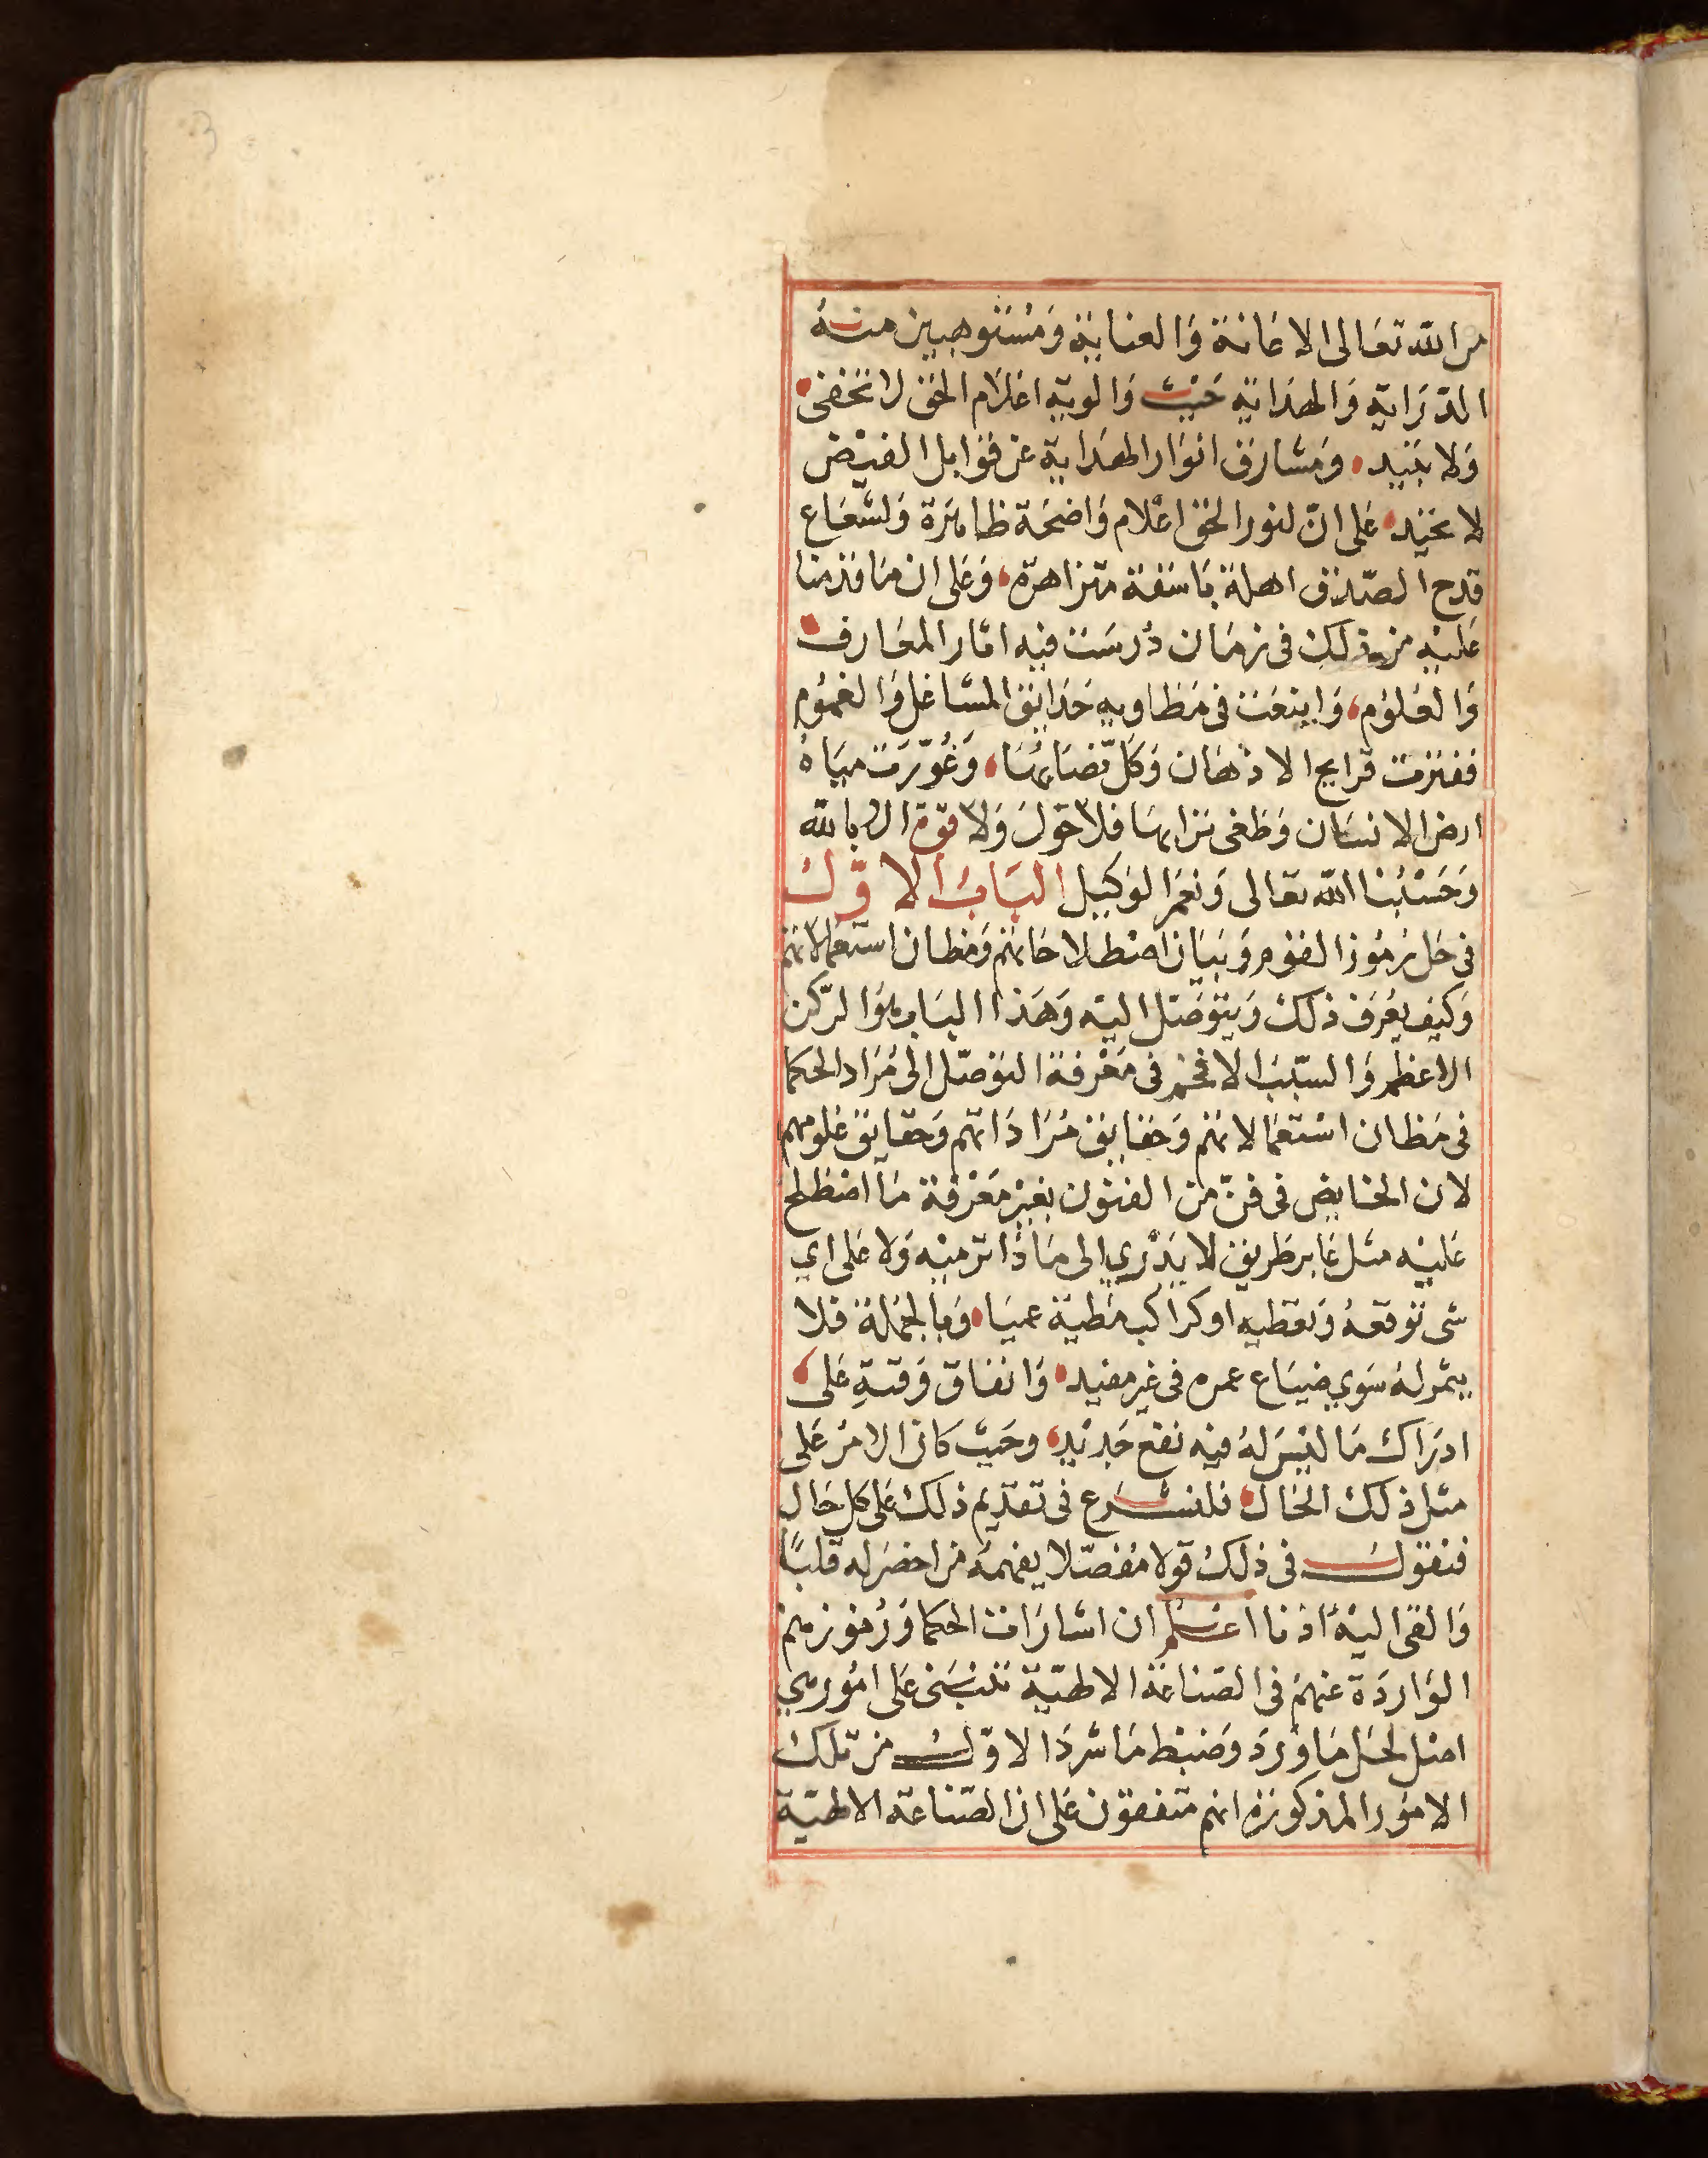 من الله تعالى الاعانة والعناية ومستوهبين منه
الدراية والهداية حيث والوية اعلام الحق لا تخفى
ولا تبيد ومشارق انوار الهداية عن قوابل الفيض
لا تحيد على ان لنور الحق اعلام واضحة ظاهرة ولشعاع
قدح الصدق اهلة باسقة متزاهرة وعلى ان ما قدمنا
عليه من ذلك فى زمان درست فيه اثار المعارف
والعلوم واينعت فى مطاويه حدايق المشاغل والغموم
ففترت قرايح الاذهان وكل مضاؤها وغورت مياه
ارض الانسان وطغى فلا حول ولا قوة الا بالله
وحسبنا الله تعالى ونعم الوكيل الباب الاول
فى حل رموز القوم وبيان اصطلاحاتهم ومظان استعمالاتهم
وكيف يعرف ذلك ويتوصل اليه وهذا الباب هو الركن
الاعظم والسبب الافخم فى معرفة التوصل الى مراد الحكما
فى مظان استعمالاتهم وحقايق مراداتهم وحقايق علومهم
لان الخايض فى فن من الفنون بغير معرفة ما اصطلح
عليه مثل عابر طريق لا يدري الى ماذا ترميه ولا على اي
شى توقعه وتعطيه او كراكب مطية عميا وبالجملة فلا
يثمر له سوي ضياع عمره فى غير مفيد وانفاق وقته على
ادراك ما ليس له فيه نفع جديد وحيث كان الامر على
مثل ذلك الحال فلنشرع فى تقديم ذلك على كل حال
فنقول فى ذلك قولا مفصلا يفهمه من احضر له قلبا
والقى اليه اذنا اعلم ان اشارات الحكما ورموزهم
الواردة عنهم فى الصناعة الالهية تنبنى على امور هي
اصل لحل ما ورد وضبط ما شرد الاول من تلك
الامور المذكورة انهم متفقون على ان الصناعة الالهية